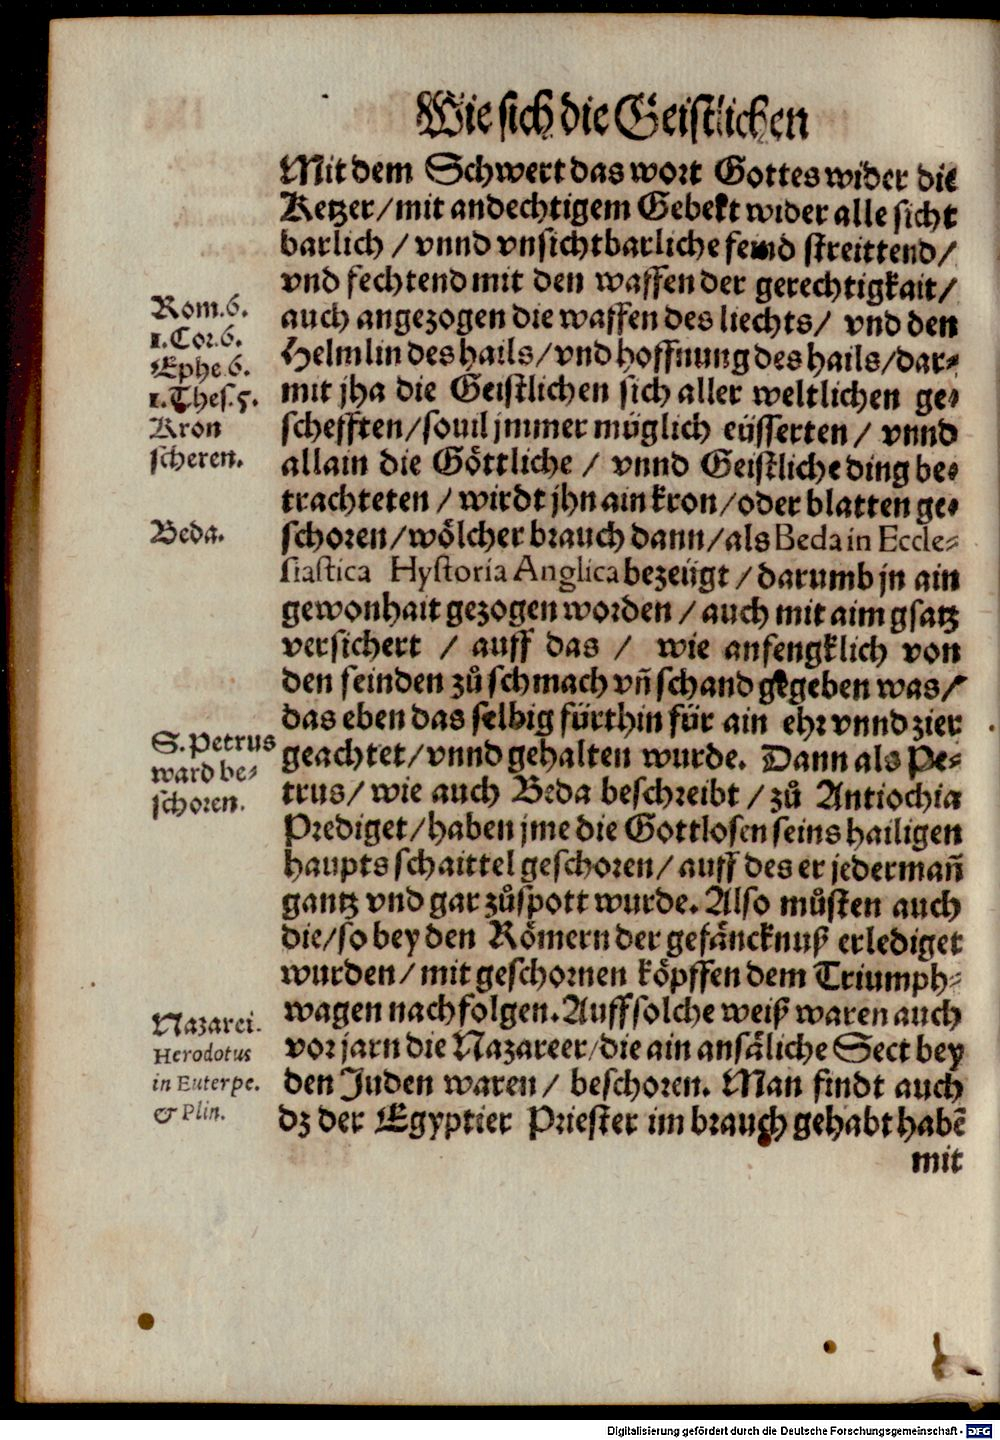 Wie sich die Geistlichen
Mit dem Schwert das wort Gottes wider die
Ketzer / mit andechtigem Gebett wider alle sicht
barlich / vnnd vnsichtbarliche feind streittend /
vnd fechtend mit den waffen der gerechtigkait /
auch angezogen die waffen des liechts / vnd den
Helmlin des hails / vnd hoffnung des hails / dar⸗
mit jha die Geistlichen sich aller weltlichen ge⸗
schefften / souil jmmer müglich eüsserten / vnnd
allain die Göttliche / vnnd Geistliche ding be⸗
trachteten / wirdt jhn ain kron / oder blatten ge⸗
schoren / wölcher brauch dann / als Beda in Eccle⸗
siastica Hystoria Anglica bezeügt / darumb jn ain
gewonhait gezogen worden / auch mit aim gsatz
versichert / auff das / wie anfengklich von
den feinden zů schmach vñ schand gegeben was /
das eben das selbig fürthin für ain ehr vnnd zier
geachtet / vnnd gehalten wurde. Dann als Pe⸗
trus / wie auch Beda beschreibt / zů Antiochia
Prediget / haben jme die Gottlosen seins hailigen
haupts schaittel geschoren / auff des er jedermañ
gantz vnd gar zůspott wurde. Also můsten auch
die / so bey den Römern der gefäncknuß erlediget
wurden / mit geschornen köpffen dem Triumph⸗
wagen nachfolgen. Auff solche weiß waren auch
vor jarn die Nazareer / die ain ansäliche Sect bey
den Juden waren / beschoren. Man findt auch
dz der Egyptier Priester im brauch gehabt habē
mit
Rom. 6.
1. Cor. 6.
Ephe. 6.
1. Thes. 5.
Kron
scheren.
Beda.
S. Petrus
ward be⸗
schoren.
Nazarei.
Herodotus
in Euterpe.
& Plin.
Digitalisierung gefördert durch die Deutsche Forschungsgemeinschaft - DFG